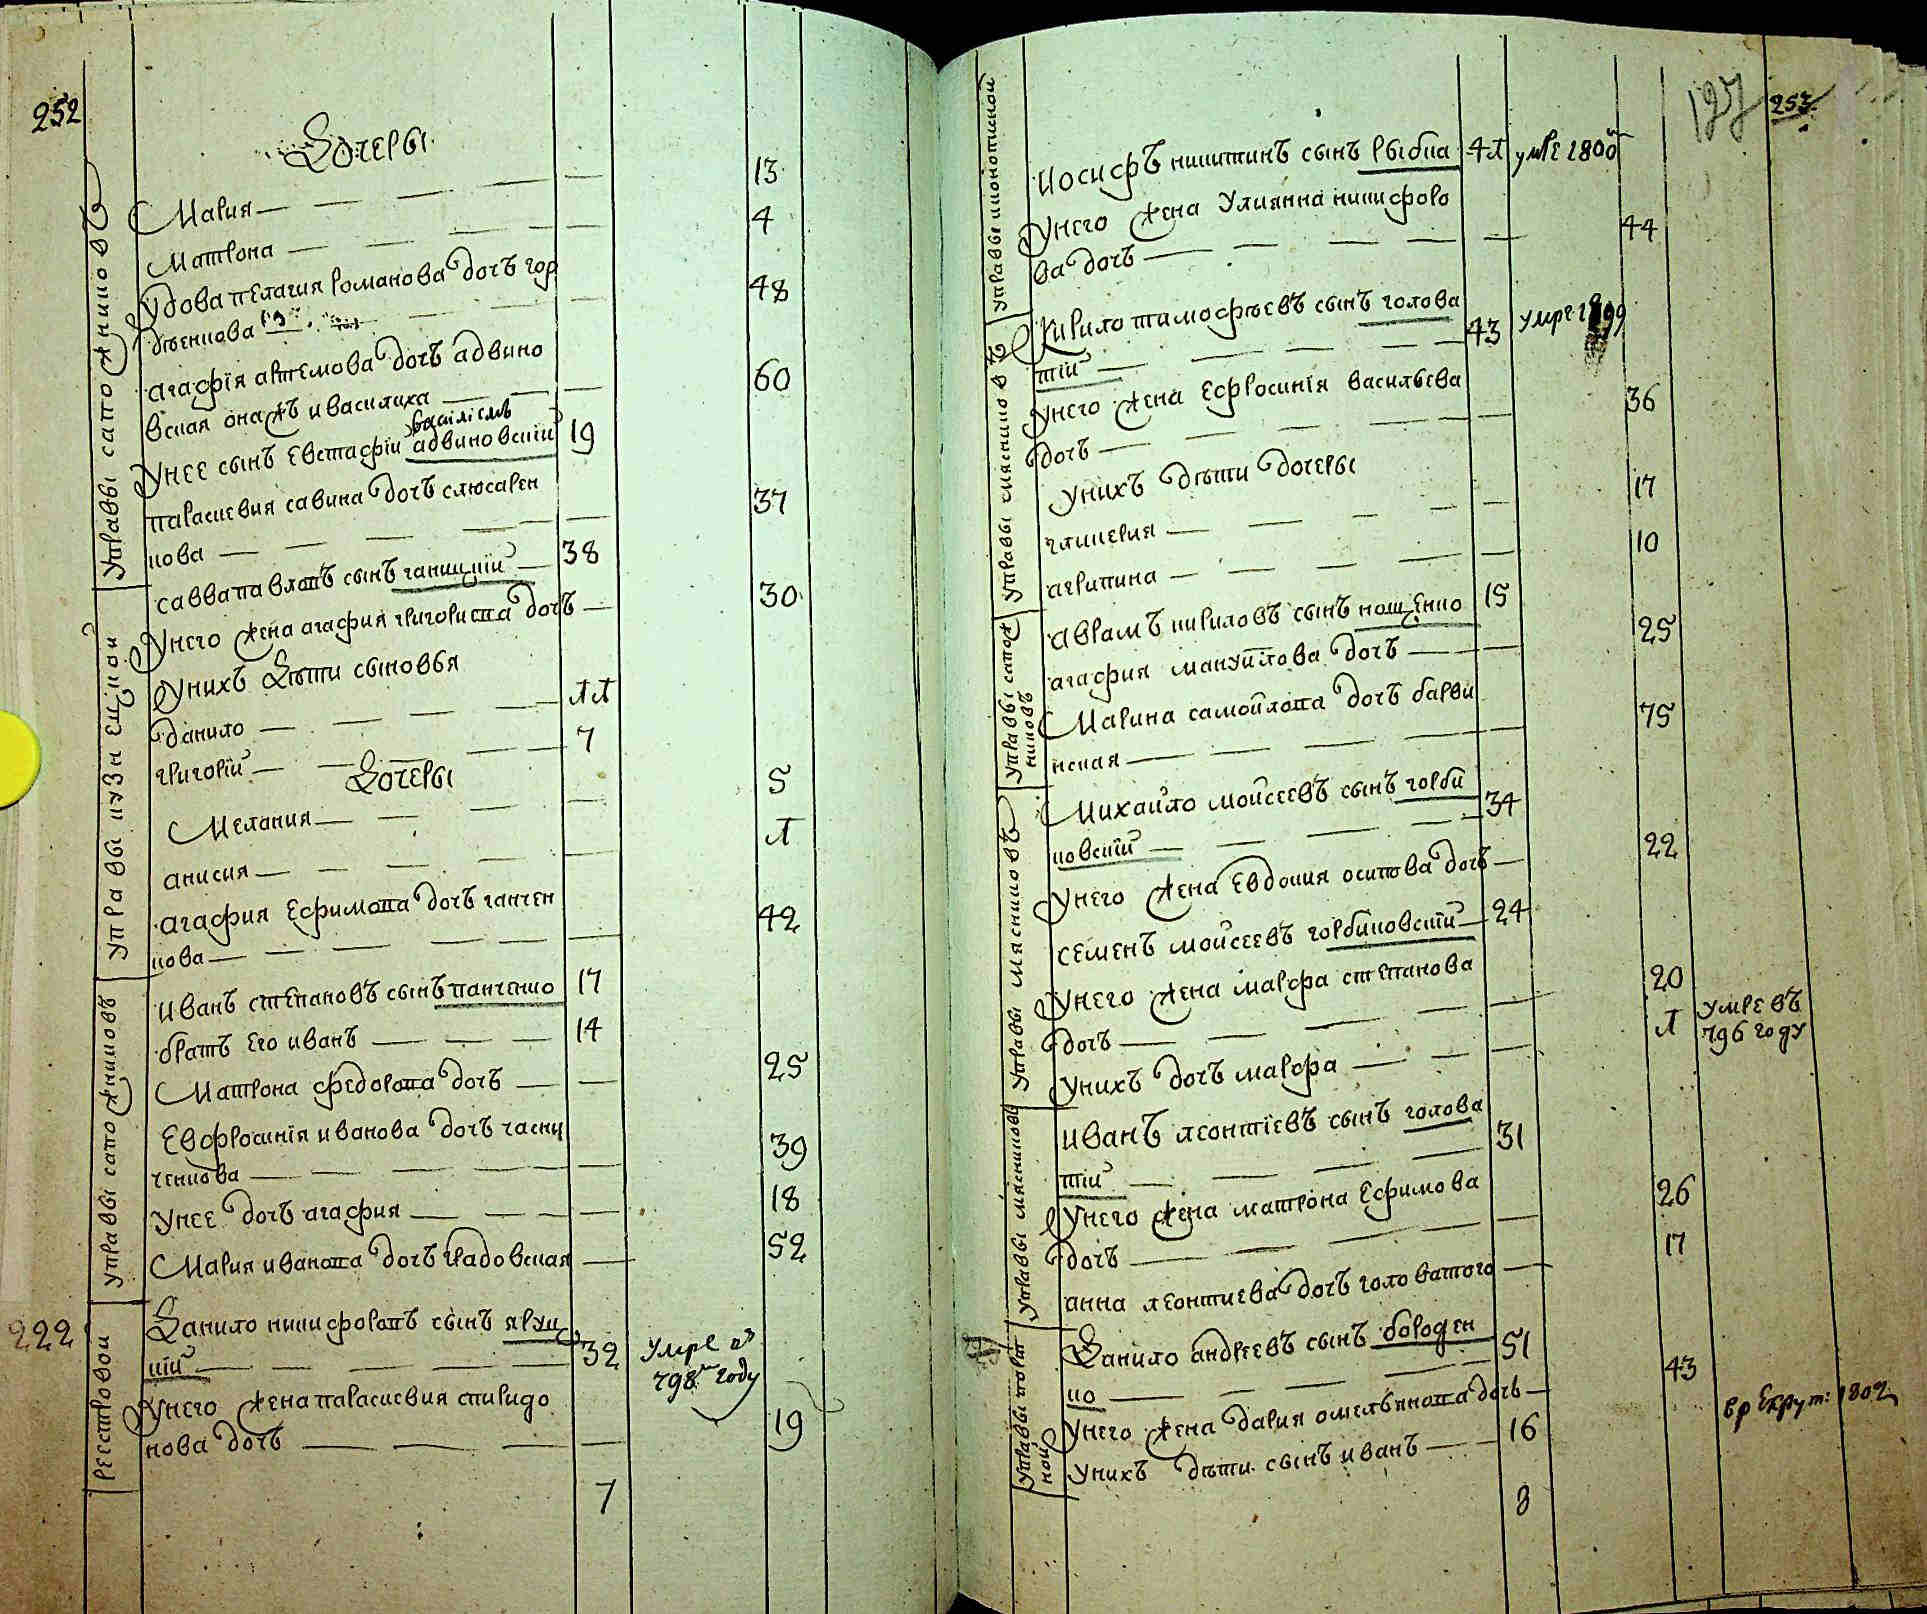 252
Дочеры
Мария — 13
Матрона — 4
Удова пелагия романова дочъ гор
дѣенкова — 48
агафїя артемова дочъ адвино
вская она жъ и василиха — 60
василїевъ
Унее сынъ Евстафiй адвиновскїй 19
параскевия савина дочъ слюсарен
кова — 37
савва павловъ сынъ ганицкїй — 38
Унего жена агафия григориева дочъ — 30
Унихъ Дѣти сыновья
данило — 11
григорїй — 7
Дочеры
Мелания — 5
анисия — 1
агафия Ефимова дочъ ганчен
кова — 42
иванъ степановъ сынъ панченко 17
братъ Его иванъ — 14
Матрона федорова дочъ — 25
Евфросинїя иванова дочъ часни
ченкова — 39
Унее дочъ агафия — 18
Мария иванова дочъ градовская — 52
222
Данило никифоровъ сынъ яруц
кїй — 32 Умре в
798м году
Унего жена параскевия спиридо
нова дочъ — 19
7
управы сапожниковъ
управы кузнецкой
управы сапожниковъ
реестровой
127 253
иосифъ никитинъ сынъ рыбка 41 умре 1800
Унего жена Улиянна никифоро
ва дочъ — 44
Кирило тимофѣевъ сынъ голова
тїй — 43 умре 1799
Унего жена Ефросинїя васильева
дочъ — 36
Унихъ дѣти дочеры
гликерия — 17
агрипина — 10
аврамъ кириловъ сынъ нощенко 15
агафия мануйлова дочъ — 25
Марина самойлова дочъ барви
нская — 75
Михайло мойсеевъ сынъ горби
ковскїй — 34
Унего жена Евдокия осипова дочъ — 22
семенъ мойсеевъ горбиковскїй — 24
Унего жена марфа степанова
дочъ — 20
Унихъ дочъ марфа — 1 умре въ
796 году
иванъ леонтїевъ сынъ голова
тїй — 31
Унего жена матрона Ефимова
дочъ — 26
анна леонтиева дочъ головатого — 17
Данило андрѣевъ сынъ бороден
ко — 51
Унего жена дария омельянова дочъ — 43
Унихъ дѣти сынъ иванъ — 16 в рекрут: 1802
8
управы иконописной
управы мяснико въ
управы сапож
никовъ
управы мясниковъ
управы мясниковъ
управы порт
ной